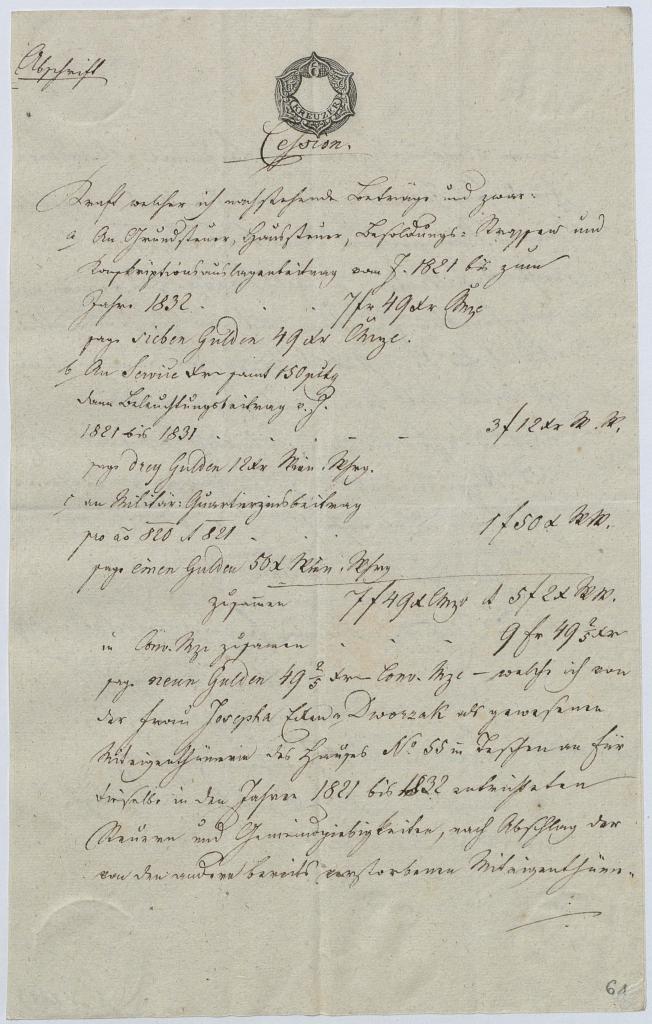 Abschrift
6
KREUZER
Cession.
Kraft welcher ich nachstehende Beträge und zwar:
a An Grundsteuer, Haussteuer, Besoldungs- und
Konskriptionsauslagenbeitrag vom J. 1821 bis zum
Jahre 1832 . . . 7 fr 49 xr CMze
sage sieben Gulden 49 xr CMze.
b An Service samt 150
dann Beleuchtungsbeitrag v. J.
1821 bis 1831 . . . - - 3 f 12 xr W. W.
sage drey Gulden 12 xr Wien. Whrg.
c an Militär-Quartierzinsbeitrag
pro ao 820 et 821 . . 1 f 50 x WW.
sage einen Gulden 50 x Wien. Whrg
zusammen 7 f 49 x CMze et 5 f 2 x WW.
in Conv. Mze zusammen . . . 9 fr 49 2/5 xr
sage neun Gulden 49 2/5 xr Conv. Mze – welche ich von
der Frau Josepha Dworzak als gewesenen
Miteigenthümerin des Hauses No 55 in Teschen an für
dieselbe in den Jahren 1821 bis 1832 entrichteten
Steuern und Gemeindgiebigkeiten, nach Abschlag der
von den andern bereits verstorbenen Miteigenthüm-
61